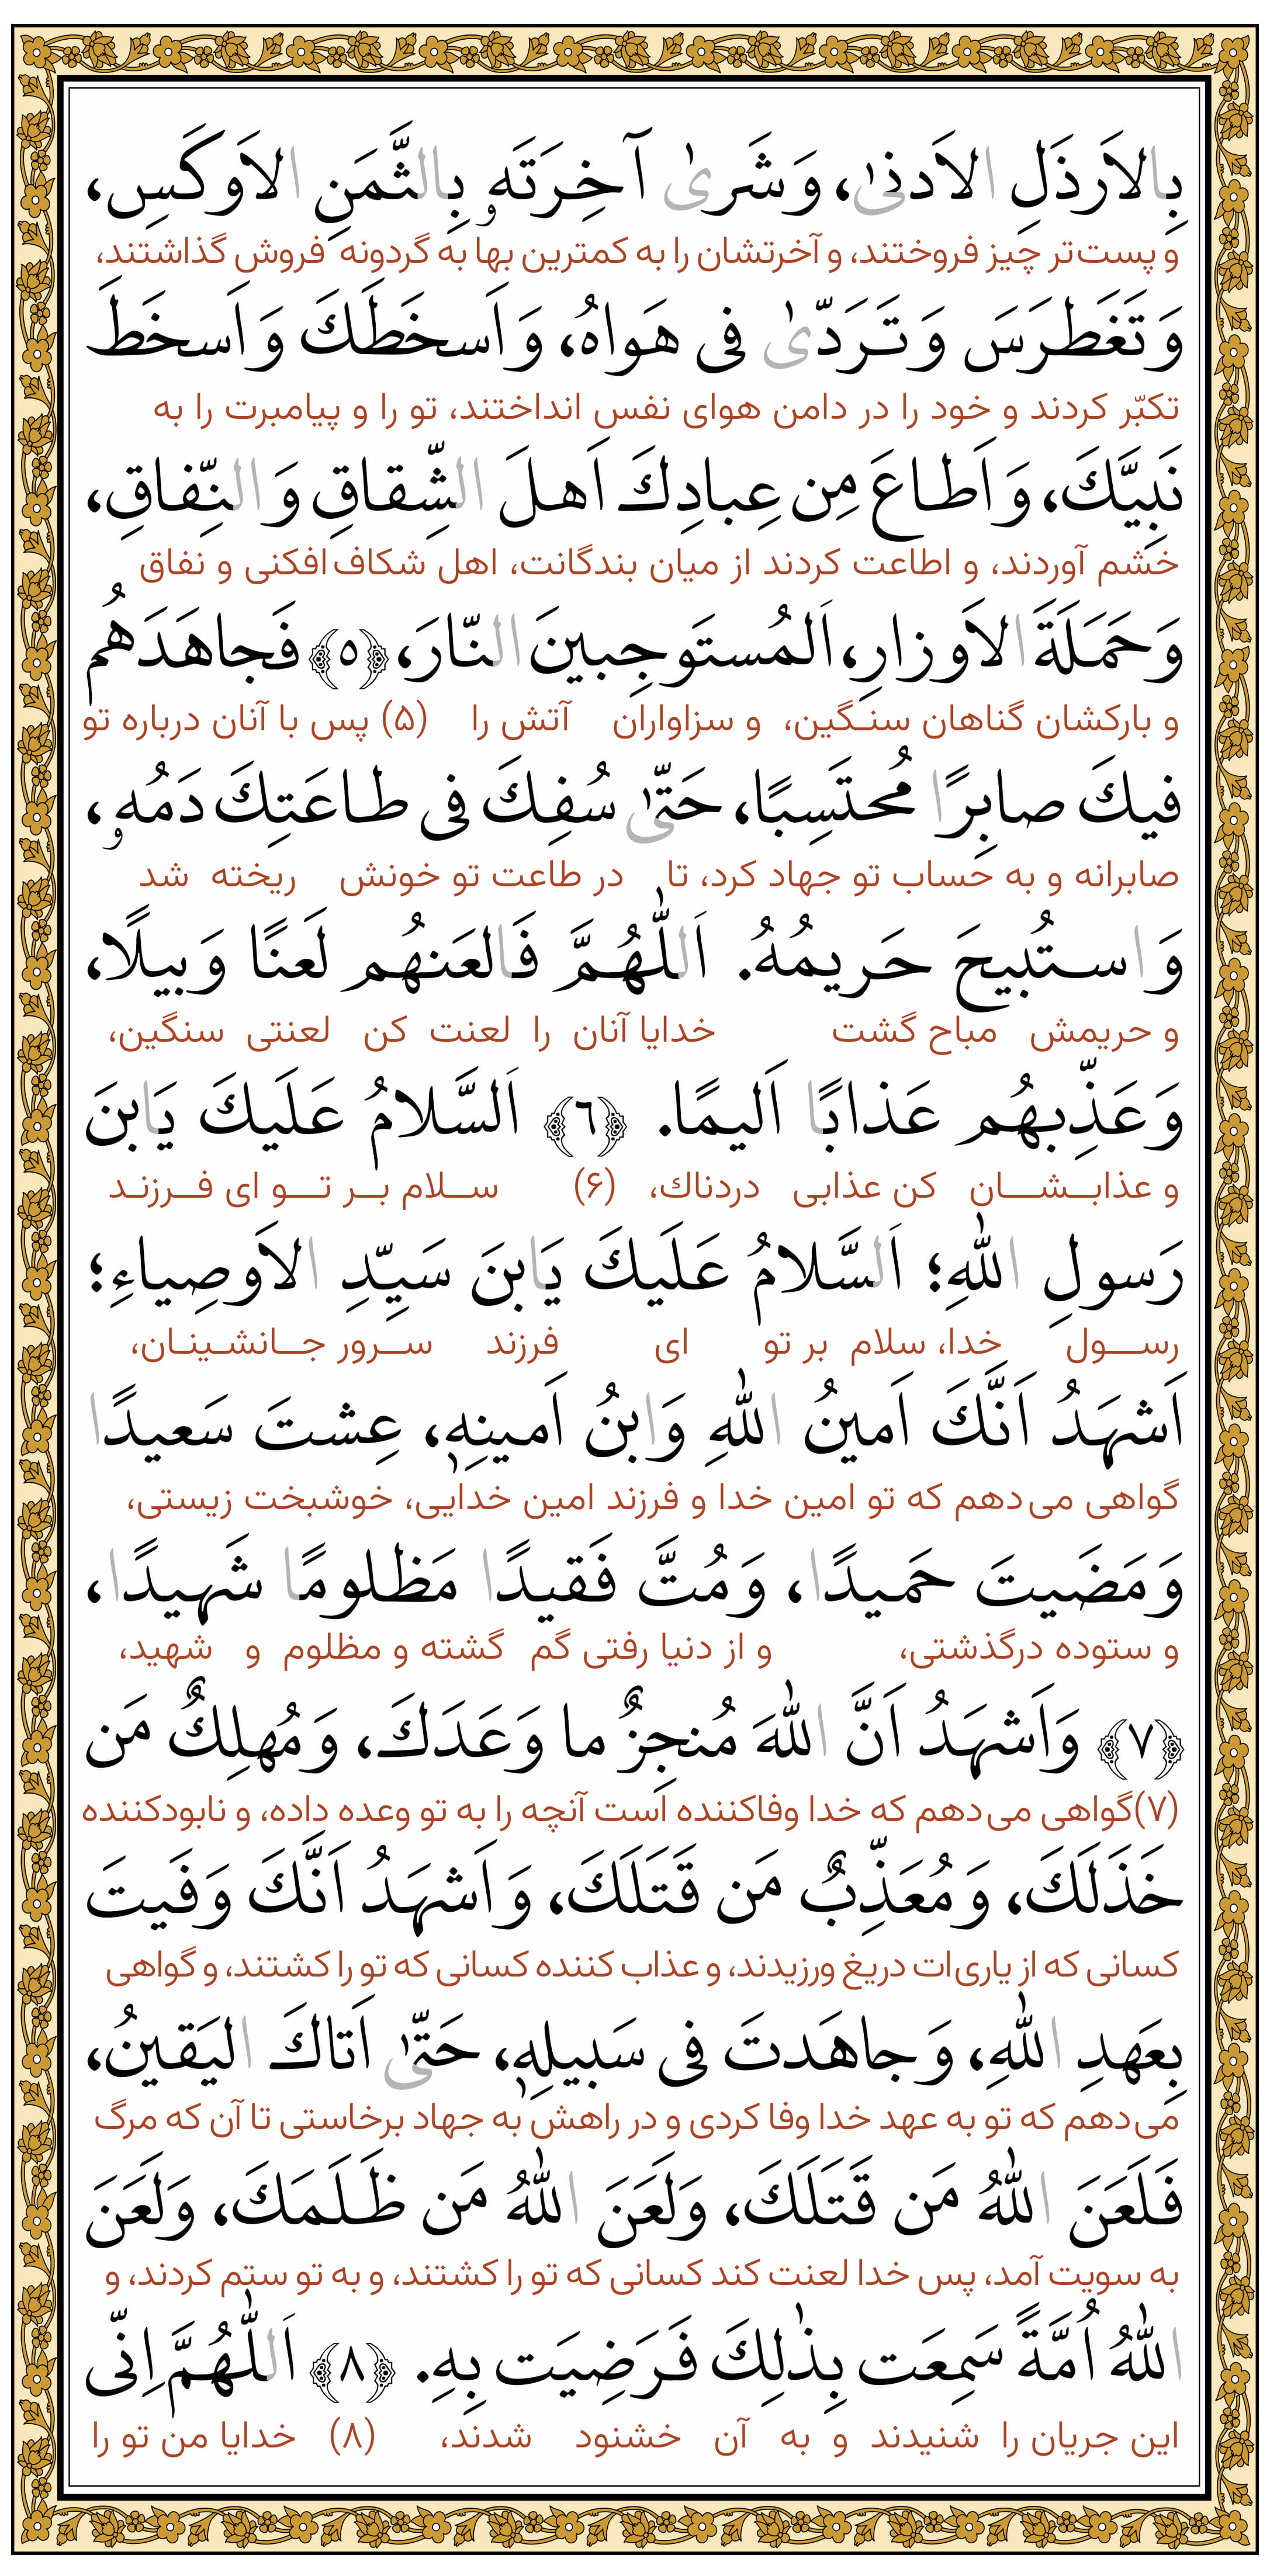 بِالاَرذَلِ الاَدنىٰ، وَ شَرىٰ آخِرَتَهٗ بِالثَّمَنِ الاَوكَسِ،
و پست‌تر چیز فروختند، و آخرتشان را به کمترین بها به گردونه فروش گذاشتند،
وَ تَغَطرَسَ وَ تَرَدّىٰ فى هَواهُ، وَ اَسخَطَكَ وَ اَسخَطَ
تکبّر کردند و خود را در دامن هوای نفس انداختند، تو را و پیامبرت را به
نَبِيَّكَ، وَ اَطاعَ مِن عِبادِكَ اَهلَ الشِّقاقِ وَ النِّفاقِ،
خشم آوردند، و اطاعت کردند از میان بندگانت، اهل شکاف‌افکنی و نفاق
وَ حَمَلَةَ الاَوزارِ، اَلمُستَوجِبينَ النّارَ، ﴿٥﴾ فَجاهَدَهُم
و بارکشان گناهان سنگین، و سزاواران آتش را (۵) پس با آنان درباره تو
فيكَ صابِرًا مُحتَسِبًا، حَتّىٰ سُفِكَ فى طاعَتِكَ دَمُهٗ،
صابرانه و به حساب تو جهاد کرد، تا در طاعت تو خونش ریخته شد
وَ استُبيحَ حَريمُهُ. اَللّٰهُمَّ فَالعَنهُم لَعنًا وَبيلًا،
و حریمش مباح گشت خدایا آنان را لعنت کن لعنتی سنگین،
وَ عَذِّبهُم عَذابًا اَليمًا. ﴿٦﴾ اَلسَّلامُ عَلَيكَ يَابنَ
و عذابشان کن عذابی دردناك، (۶) سلام بر تو ای فرزند
رَسولِ اللهِ؛ اَلسَّلامُ عَلَيكَ يَابنَ سَيِّدِ الاَوصِياءِ؛
رسول خدا، سلام بر تو ای فرزند سرور جانشینان،
اَشهَدُ اَنَّكَ اَمينُ اللهِ وَابنُ اَمينِهٖ، عِشتَ سَعيدًا
گواهی می‌دهم که تو امین خدا و فرزند امین خدایی، خوشبخت زیستی،
وَ مَضَيتَ حَميدًا، وَ مُتَّ فَقيدًا مَظلومًا شَهيدًا،
و ستوده درگذشتی، و از دنیا رفتی گم گشته و مظلوم و شهید،
﴿٧﴾ وَ اَشهَدُ اَنَّ اللهَ مُنجِزٌ ما وَعَدَكَ، وَ مُهلِكٌ مَن
(۷) گواهی می‌دهم که خدا وفاکننده است آنچه را به تو وعده داده، و نابودکننده
خَذَلَكَ، وَ مُعَذِّبٌ مَن قَتَلَكَ، وَ اَشهَدُ اَنَّكَ وَفَيتَ
کسانی که از یاری‌ات دریغ ورزیدند، و عذاب کننده کسانی که تو را کشتند، و گواهی
بِعَهدِ اللهِ، وَ جاهَدتَ فى سَبيلِهٖ، حَتّىٰ اَتاكَ اليَقينُ،
می‌دهم که تو به عهد خدا وفا کردی و در راهش به جهاد برخاستی تا آن که مرگ
فَلَعَنَ اللهُ مَن قَتَلَكَ، وَلَعَنَ اللهُ مَن ظَلَمَكَ، وَلَعَنَ
به سویت آمد، پس خدا لعنت کند کسانی که تو را کشتند، و به تو ستم کردند، و
اللهُ اُمَّةً سَمِعَت بِذٰلِكَ فَرَضِيَت بِهِ. ﴿٨﴾ اَللّٰهُمَّ اِنّى
این جریان را شنیدند و به آن خشنود شدند، (۸) خدایا من تو را